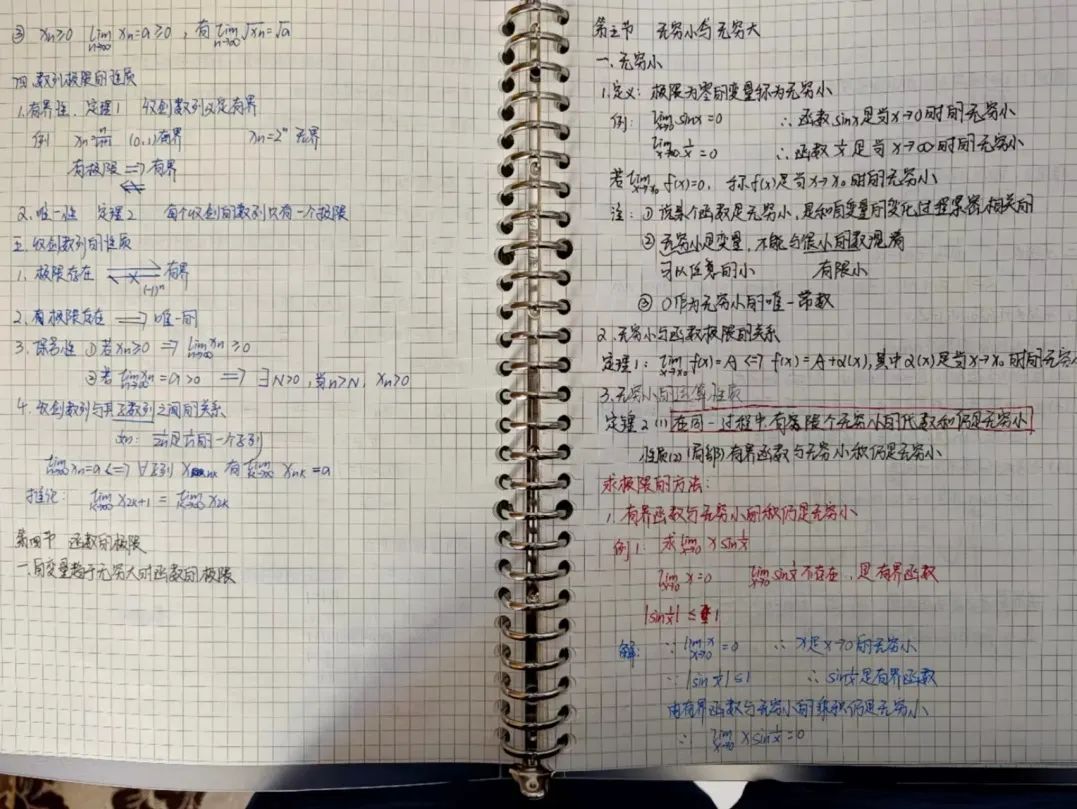 ③ xn≥0 lim n→∞ xn=a≥0, 有 lim n→∞ √xn=√a
四.数列极限的性质
1.有界性. 定理1 收敛数列必定有界
例 xn=n/n+1 (0,1)有界 xn=2^n 无界
有极限⟹有界
⟸
2.唯一性 定理2 每个收敛的数列只有一个极限
五.收敛数列的性质
1. 极限存在 有界
(-1)^n
2.有极限存在 ⟹ 唯一的
3.保号性 ①若xn≥0 ⟹ lim n→∞ xn≥0
②若 lim n→∞ xn=a>0 ⟹ ∃N>0,当n>N, xn>0
4.收敛数列与其子数列之间的关系
如: 1/2n是1/n的一个子列
lim n→∞ xn=a⟺∀子列 xnk 有 lim k→∞ xnk=a
推论: lim k→∞ x2k+1 = lim k→∞ x2k
第四节 函数的极限
一.自变量趋于无穷大时函数的极限
第五节 无穷小与无穷大
一.无穷小
1.定义: 极限为零的变量称为无穷小
例: lim x→0 sinx=0 ∴函数sinx是当x→0时的无穷小
lim x→∞ 1/x=0 ∴函数1/x是当x→∞时的无穷小
若 lim x→x₀ f(x)=0, 称f(x)是当x→x₀时的无穷小
注: ①说某个函数是无穷小,是和自变量的变化过程紧密相关的
②无穷小是变量,不能与很小的数混淆
可以任意的小 有限小
③ 0作为无穷小的唯一常数
2.无穷小与函数极限的关系
定理1: lim x→x₀ f(x)=A⟺f(x)=A+α(x),其中α(x)是当x→x₀时的无穷小
3.无穷小的运算性质
定理2 (1) 在同一过程中,有限个无穷小的代数和仍是无穷小
性质(2) (局部)有界函数与无穷小积仍是无穷小
求极限的方法:
1.有界函数与无穷小的积仍是无穷小
例1: 求 lim x→0 x sin1/x
lim x→0 x=0 lim x→0 sin1/x 不存在, 是有界函数
|sin1/x| ≤ 1
解: ∵ lim x→0 x=0 ∴ x是x→0的无穷小
∵ |sin1/x|≤1 ∴ sin1/x是有界函数
由有界函数与无穷小的乘积仍是无穷小
∴ lim x→0 x sin1/x=0